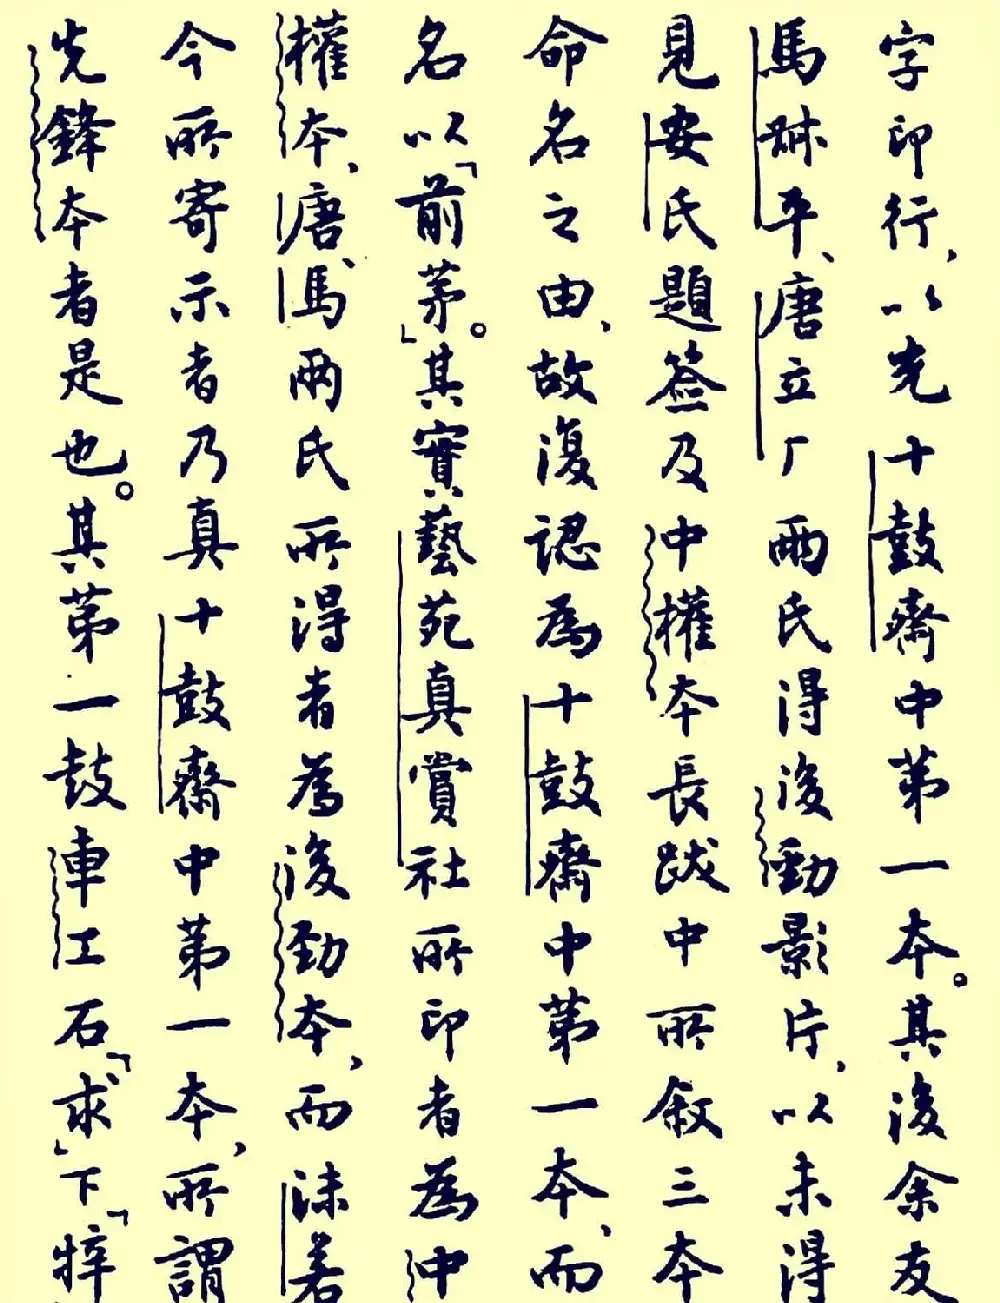 字印行,以充十鼓齋中第一本。其後余友
馬㻏平、唐立厂兩氏得後勁影片,以未得
見安氏題簽及中權本長跋中所叙三本
命名之由,故復認爲十鼓齋中第一本,而
名以「前茅」。其實藝苑真賞社所印者爲中
權本,唐、馬兩氏所得者爲後勁本,而沫若
今所寄示者乃真十鼓齋中第一本,所謂
先鋒本者是也。其第一鼓車工石,「求」下「㹑